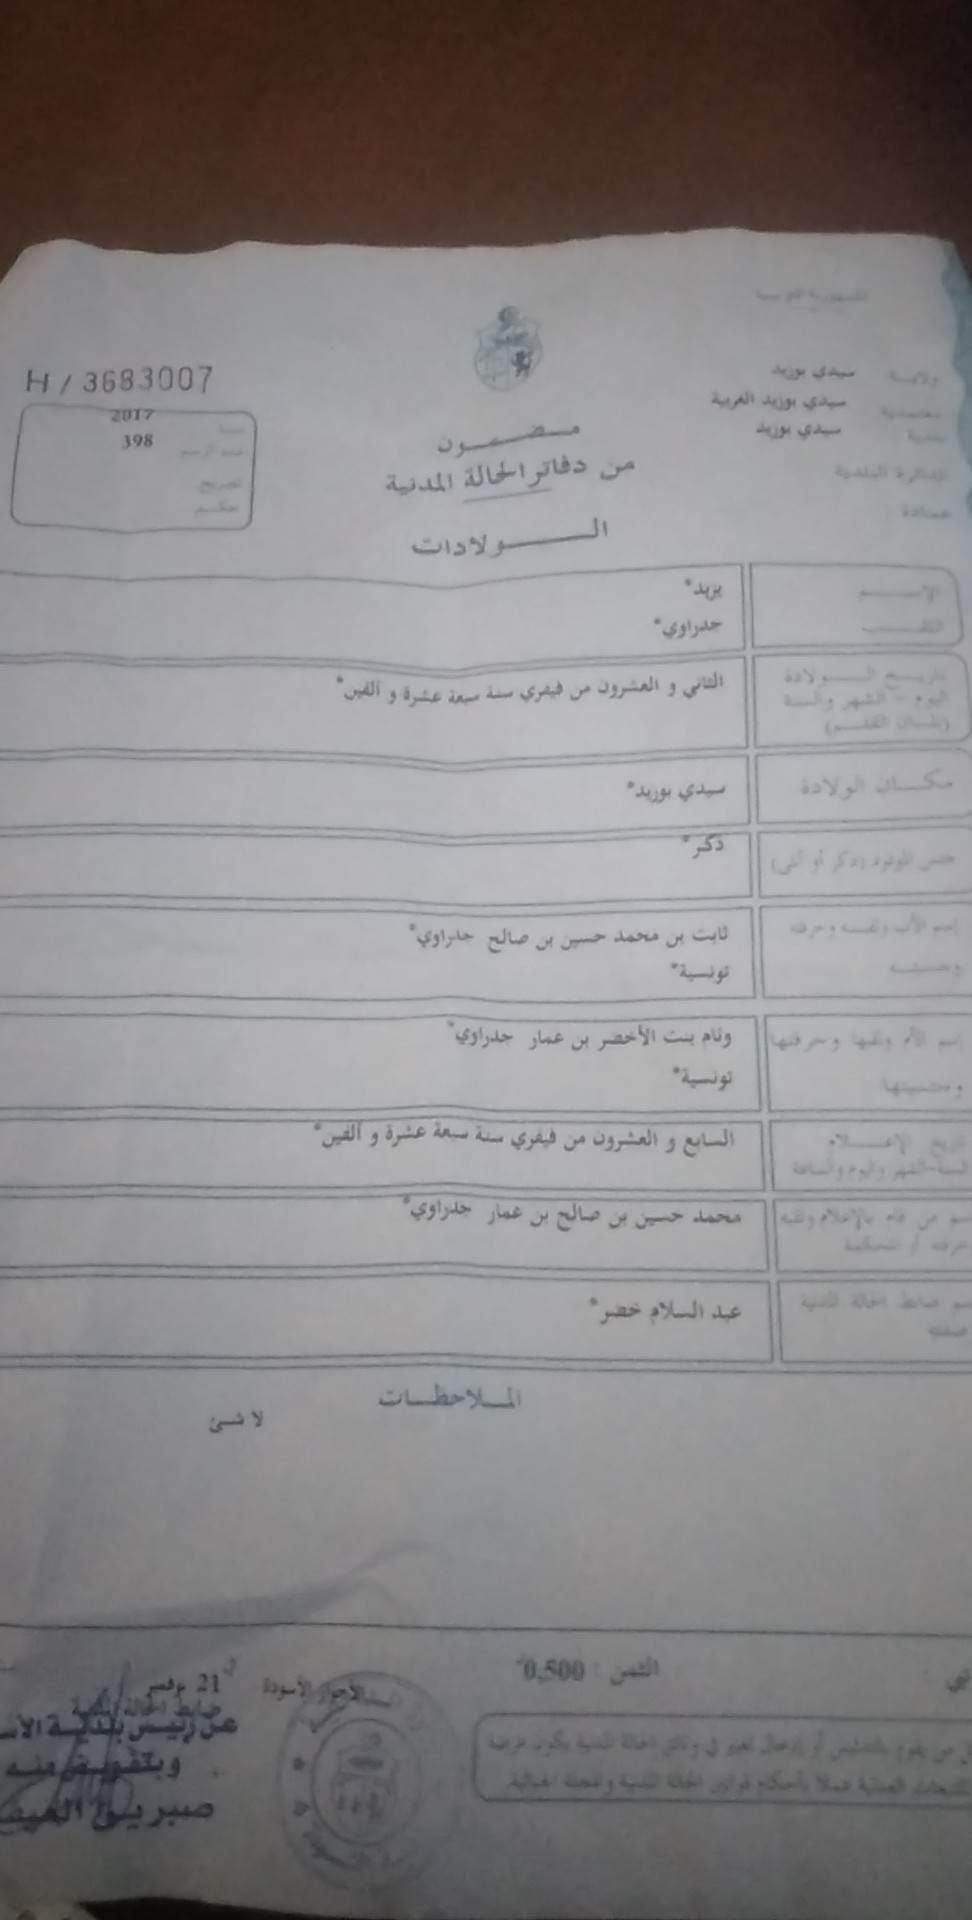 الجمهورية التونسية
H / 3683007
ولاية سيدي بوزيد
معتمدية سيدي بوزيد الغربية
بلدية سيدي بوزيد
الدائرة البلدية
عمادة
سنة 2017
عدد الرسم 398
تصريح
حكم
مضمون
من دفاتر الحالة المدنية
الولادات
الإسم يزيد*
اللقب جدراوي*
تاريخ الولادة
اليوم - الشهر والسنة
(بلسان القلم)
الثاني و العشرون من فيفري سنة سبعة عشرة و ألفين*
مكان الولادة سيدي بوزيد*
جنس المولود (ذكر أو أنثى) ذكر*
إسم الأب ولقبه وحرفته
وجنسيته
ثابت بن محمد حسين بن صالح جدراوي*
تونسية*
إسم الأم ولقبها وحرفتها
وجنسيتها
وئام بنت الأخضر بن عمار جدراوي*
تونسية*
تاريخ الإعلام
السنة-الشهر واليوم والساعة
السابع و العشرون من فيفري سنة سبعة عشرة و ألفين*
من قام بالإعلام ولقبه
حرفته أو
محمد حسين بن صالح بن عمار جدراوي*
ضابط الحالة المدنية
صفته
عبد السلام خضر*
الملاحظات
لا شئ
الثمن : 0,500
الأسودة
21 نوفمبر
ضابط الحالة المدنية
عن رئيس بلدية
وبتفويض منه
من يقوم بالتدليس أو إدخال تغيير في وثائق الحالة المدنية يكون عرضة
للتتبعات العدلية عملا بأحكام قوانين الحالة المدنية والمجلة الجنائية